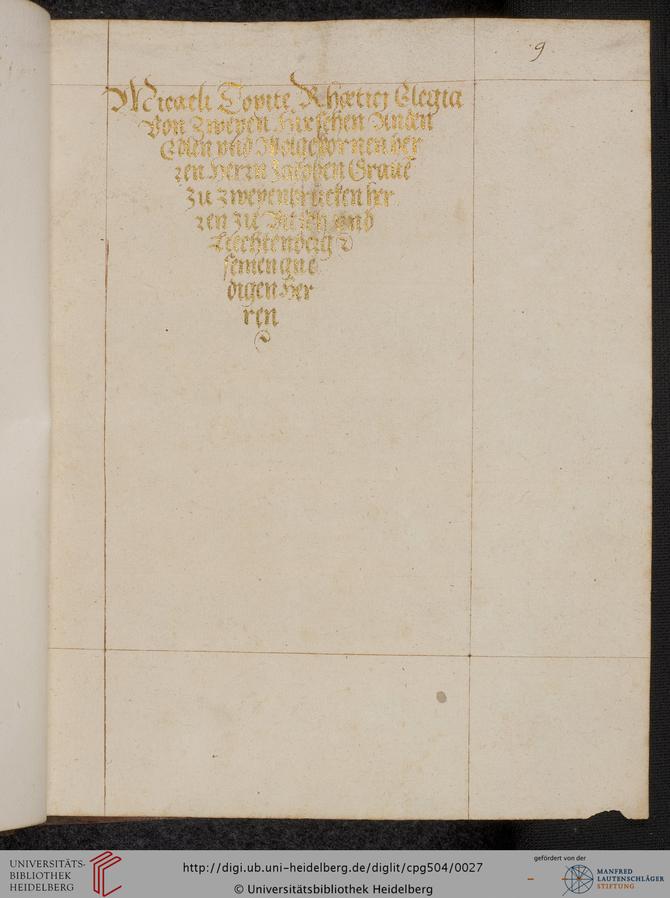 9
Micaeli Toxite Rhætici Elegia
Von Zweyen Hirschen An den
Edlen und Wolgebornen her
ren Herrn Jacoben Graue
zu zweyenbrucken her
ren zu Bitsch und
Liechtenberg
seinen gne
digen Her
ren
UNIVERSITÄTS-
BIBLIOTHEK
HEIDELBERG
http://digi.ub.uni-heidelberg.de/diglit/cpg504/0027
© Universitätsbibliothek Heidelberg
gefördert von der
MANFRED
LAUTENSCHLÄGER
STIFTUNG